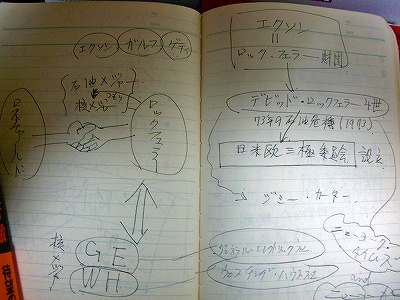 エクソン ガルフ ゲティ
石油メジャー
核メジャー
ロスチャイルド
ロックフェラー
核メジャー
GE
WH
エクソン
=
ロックフェラー財閥
デビッド・ロックフェラー
73年の石油危機(1973)
日米欧三極委員会 設立
ジミー・カーター
ゼネラル・エレクトリック社
ウェスティング・ハウス社
ニューヨーク
タイムズ
and